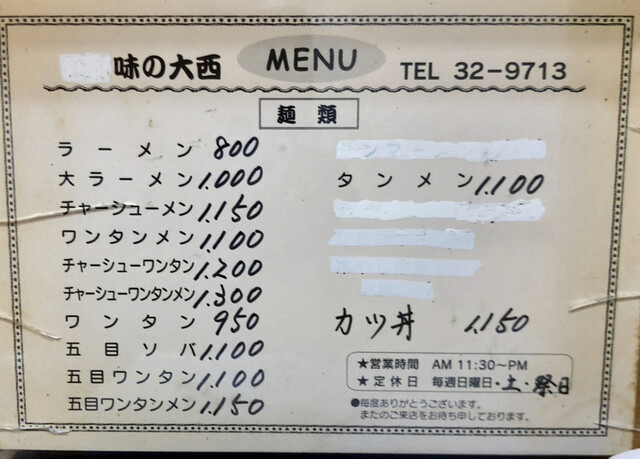 味の大西
MENU
TEL 32-9713
麺類
ラーメン 800
大ラーメン 1.000
チャーシューメン 1.150
ワンタンメン 1.100
チャーシューワンタン 1.200
チャーシューワンタンメン 1.300
ワンタン 950
五目ソバ 1.100
五目ワンタン 1.100
五目ワンタンメン 1.150
タンメン 1.100
カツ丼 1.150
★営業時間 AM 11:30〜PM
★定休日 毎週日曜日・土・祭日
●毎度ありがとうございます。
またのご来店をお待ち申しております。